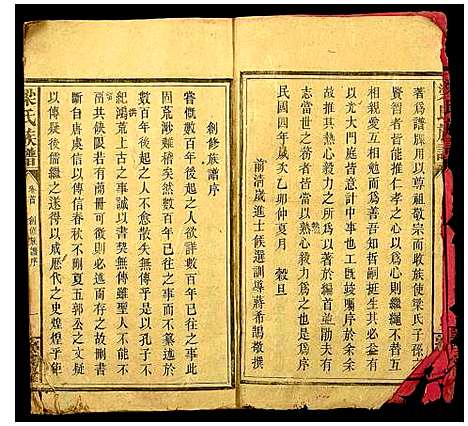 著為譜牒用以尊祖敬宗而收族使梁氏子孫
賢智者皆能推仁孝之心以為心則繼繩不替互
相親愛互相勉勵而益愈焉知哲嗣挺生其必益有
以光大門庭者豈意計中事也工既竣囑序於余余
故推其熱心毅力之所為以著於編首並勖夫有
志當世之務者皆當以熱心毅力為之也是為序
民國四年歲次乙卯仲夏月 穀旦
前清歲進士候選訓導蔣希閎敬撰
創修族譜序
嘗慨數百年後起之人不能詳數百年已往之事此
固荒渺難稽矣然數百年已往之事而不纂述於
數百年後起之人不愈散失無傳乎是以孔子不
紀鴻荒上古之事誠以書契無傳雖聖人不能不
共飲限若有簡冊可後則必追而存之故刪書
斷自唐虞信以傳信春秋不刪夏五郭公之文疑
以傳疑後儒繼之遂得以成歷代之史煌煌乎鉅
梁氏族譜
卷首 創修族譜序